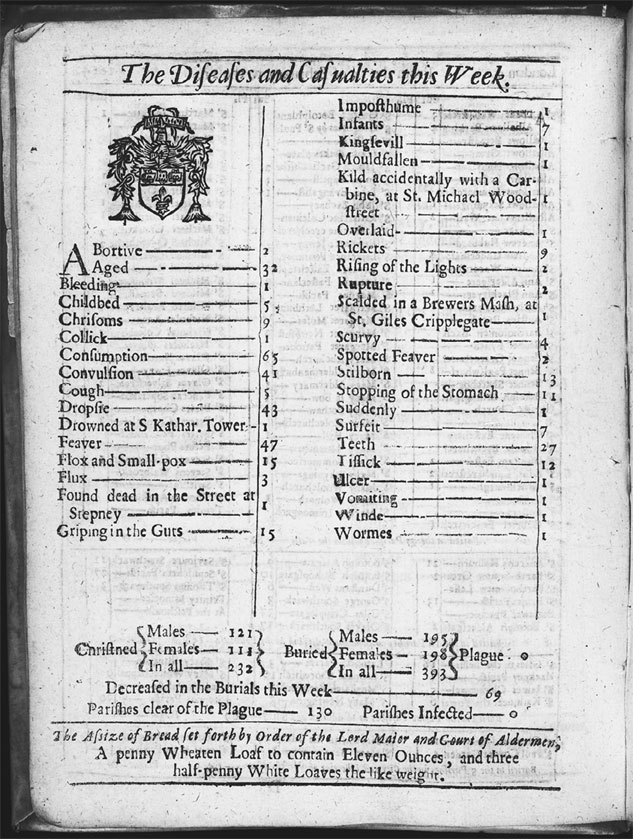 The Diſeaſes and Caſualties this Week.
ABortive 2
Aged 32
Bleeding 1
Childbed 5
Chriſoms 9
Collick 1
Conſumption 65
Convulſion 41
Cough 5
Dropſie 43
Drowned at S Kathar. Tower 1
Feaver 47
Flox and Small-pox 15
Flux 3
Found dead in the Street at
Stepney 1
Griping in the Guts 15
Impoſthume 1
Infants 7
Kingſevill 1
Mouldfallen 1
Kild accidentally with a Car-
bine, at St. Michael Wood-
ſtreet 1
Overlaid 1
Rickets 9
Riſing of the Lights 2
Rupture 2
Scalded in a Brewers Maſh, at
St. Giles Cripplegate 1
Scurvy 4
Spotted Feaver 2
Stilborn 13
Stopping of the Stomach 11
Suddenly 1
Surfeit 7
Teeth 27
Tiſſick 12
Ulcer 1
Vomiting 1
Winde 1
Wormes 1
Chriſtned Males 121 Females 111 In all 232 Buried Males 195 Females 198 In all 393 Plague 0
Decreaſed in the Burials this Week 69
Pariſhes clear of the Plague 130 Pariſhes Infected 0
The Aſsize of Bread ſet forth by Order of the Lord Maior and Court of Aldermen,
A penny Wheaten Loaf to contain Eleven Ounces, and three
half-penny White Loaves the like weight.